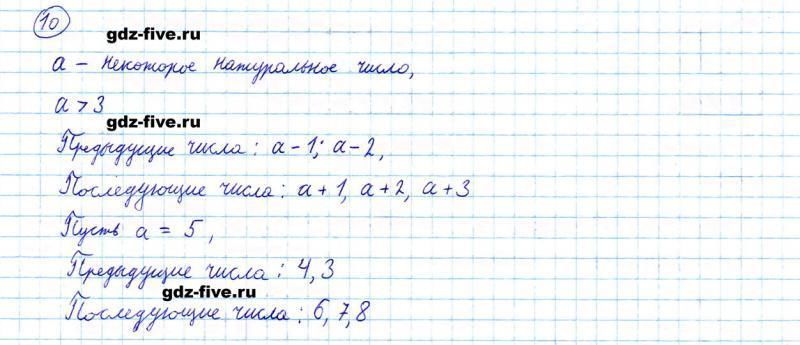 10
gdz-five.ru
а – некоторое натуральное число,
а > 3
gdz-five.ru
Предыдущие числа: а-1; а-2,
Последующие числа: а+1, а+2, а+3
Пусть а = 5,
Предыдущие числа: 4,3
gdz-five.ru
Последующие числа: 6,7,8